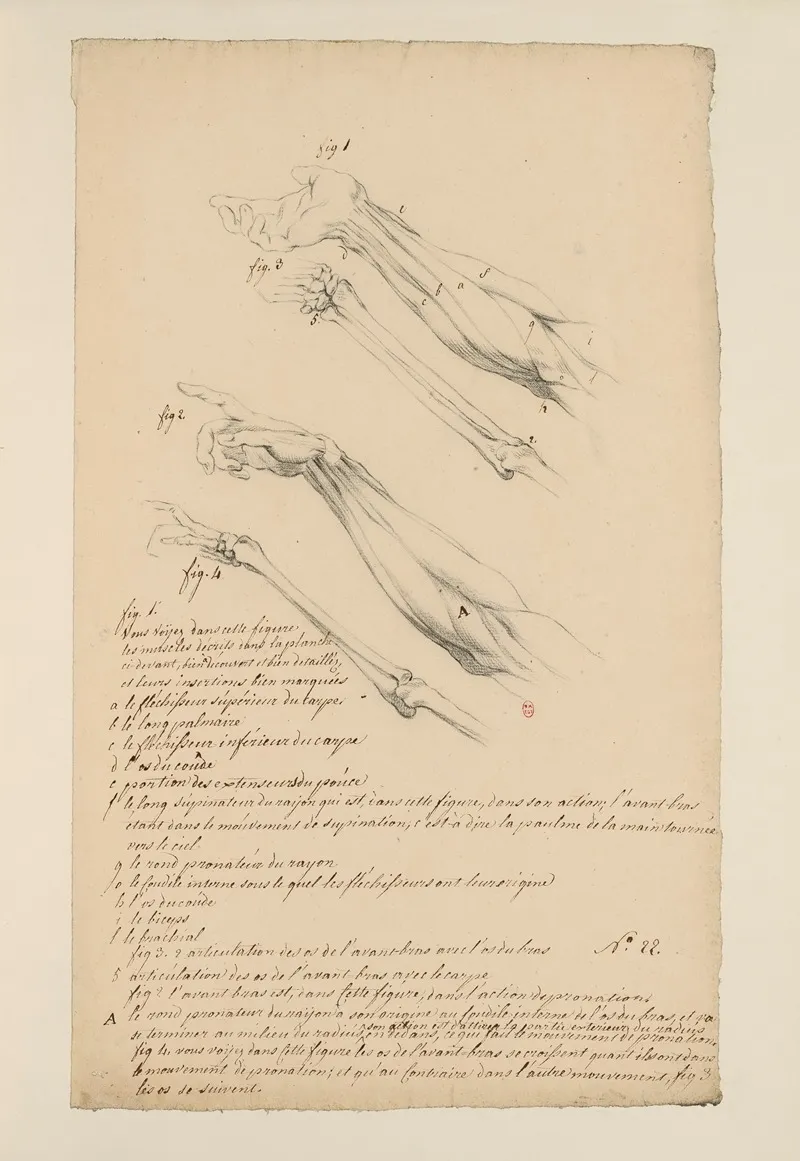 fig 1
e
d
fig. 3
f
a
b
c
5.
g
i
l
o
h
2.
fig 2.
fig. 4
A
fig. 1.
Vous voÿez dans cette figure
les muscles décrits dans la planche
ci devant, bien découvert et bien détaillés,
et leurs insertions bien marquées
a le fléchisseur supérieur du carpe
b le long palmaire
c le fléchisseur inférieur du carpe
d l'os du coude
e portion des extenseurs du pouce
f le long supinateur du raÿon qui est, dans cette figure, dans son action; l'avant-bras
étant dans le mouvement de supination, c'est-à dire la paulme de la main tournée
vers le ciel
g le rond pronateur du rayon
o le condile interne sous le quel les fléchisseurs ont leur origine
h l'os du coude
i le biceps
l le brachial
fig 3. 2 articulation des os de l'avant-bras avec l'os du bras
N.º 22.
5 articulation des os de l'avant-bras avec le carpe
fig 2. l'avant bras est, dans cette figure, dans l'action de pronation
A le rond pronateur du raÿon a son origine au condile interne de l'os du bras, et va
se terminer au milieu du radius, son action est d'attirer la partie exterieure du radius
en dedans, ce qui fait le mouvement de pronation.
fig 4. vous voÿez dans cette figure les os de l'avant-bras se croissent quant ils sont dans
le mouvement de pronation; et qu'au contraire dans l'autre mouvement, fig 3
les os se suivent.